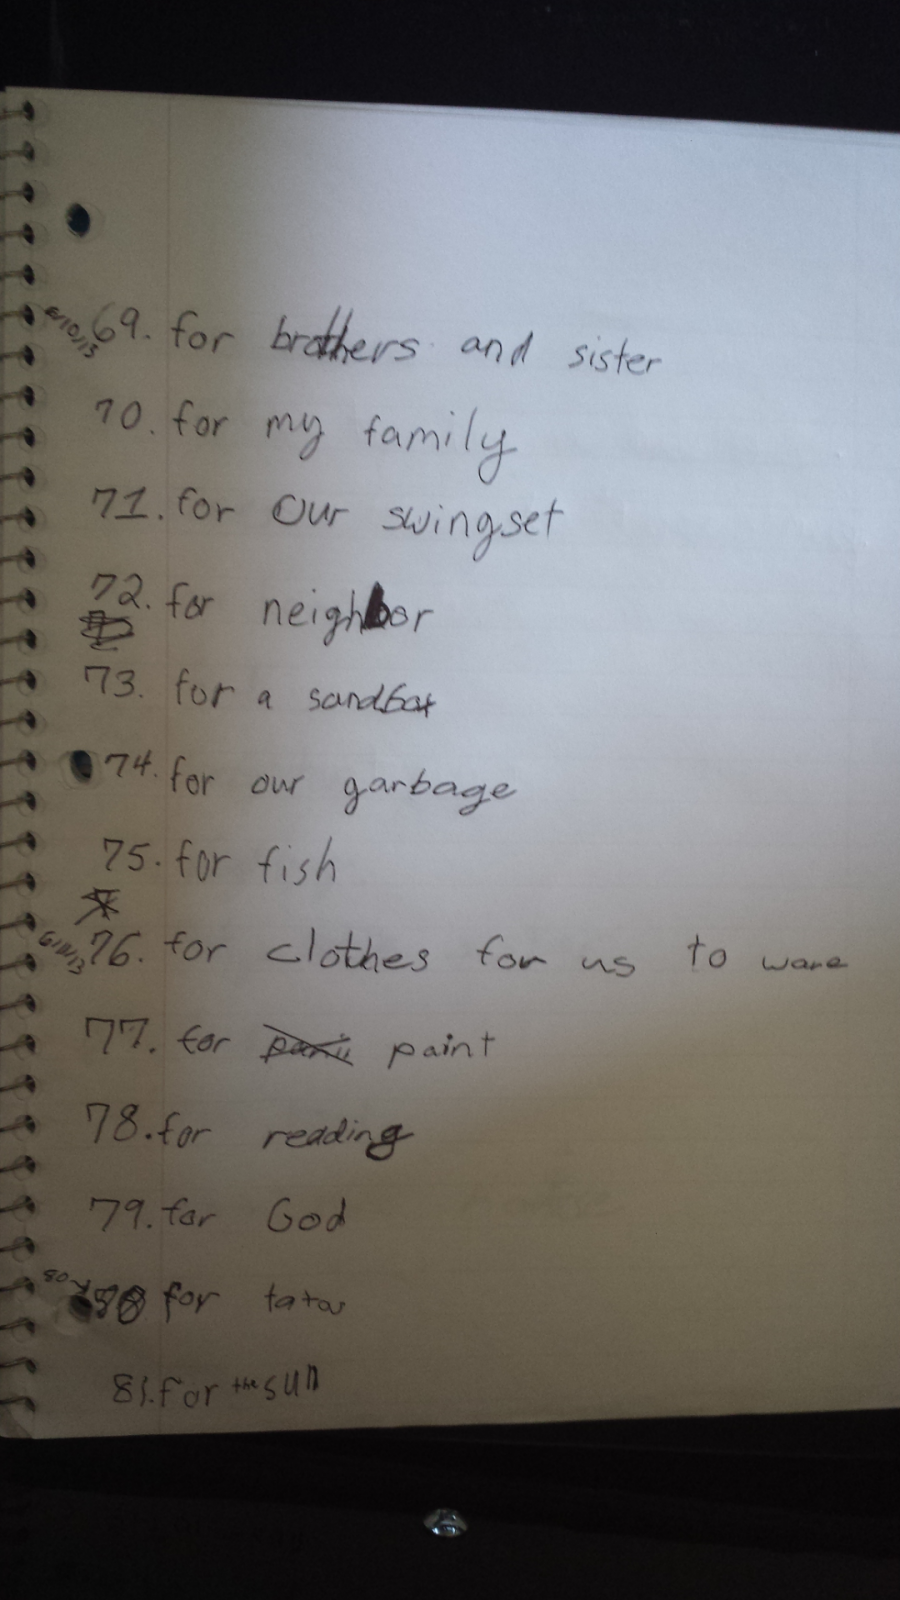 6/10/13 69. for brothers and sister
70. for my family
71. for our swingset
72. for neighbor
73. for a sandbox
74. for our garbage
75. for fish
6/11/13 76. for clothes for us to ware
77. for paint
78. for reading
79. for God
80 for
81. for the sun